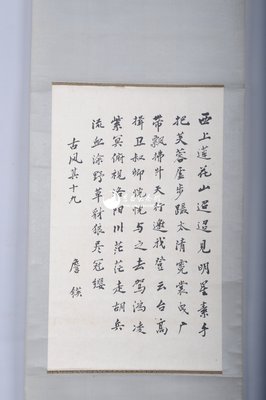 西上莲花山迢迢见明星素手
把芙蓉虚步蹑太清霓裳曳广
带飘拂升天行邀我登云台高
揖卫叔卿恍恍与之去驾鸿凌
紫冥俯视洛阳川茫茫走胡兵
流血涂野草豺狼尽冠缨
古风其十九 詹锳